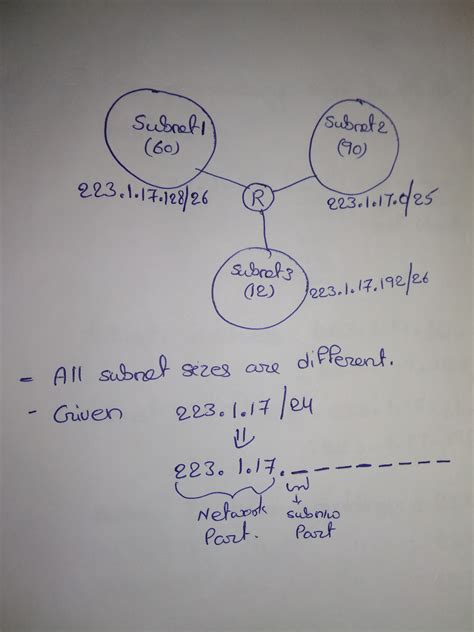 Subnet1
(60)
Subnet2
(90)
R
223.1.17.128/26
223.1.17.0/25
Subnet3
(12)
223.1.17.192/26
- All subnet sizes are different.
- Given 223.1.17/24
⇓
223.1.17. _ _ _ _ _ _ _ _
Network Part.
Part